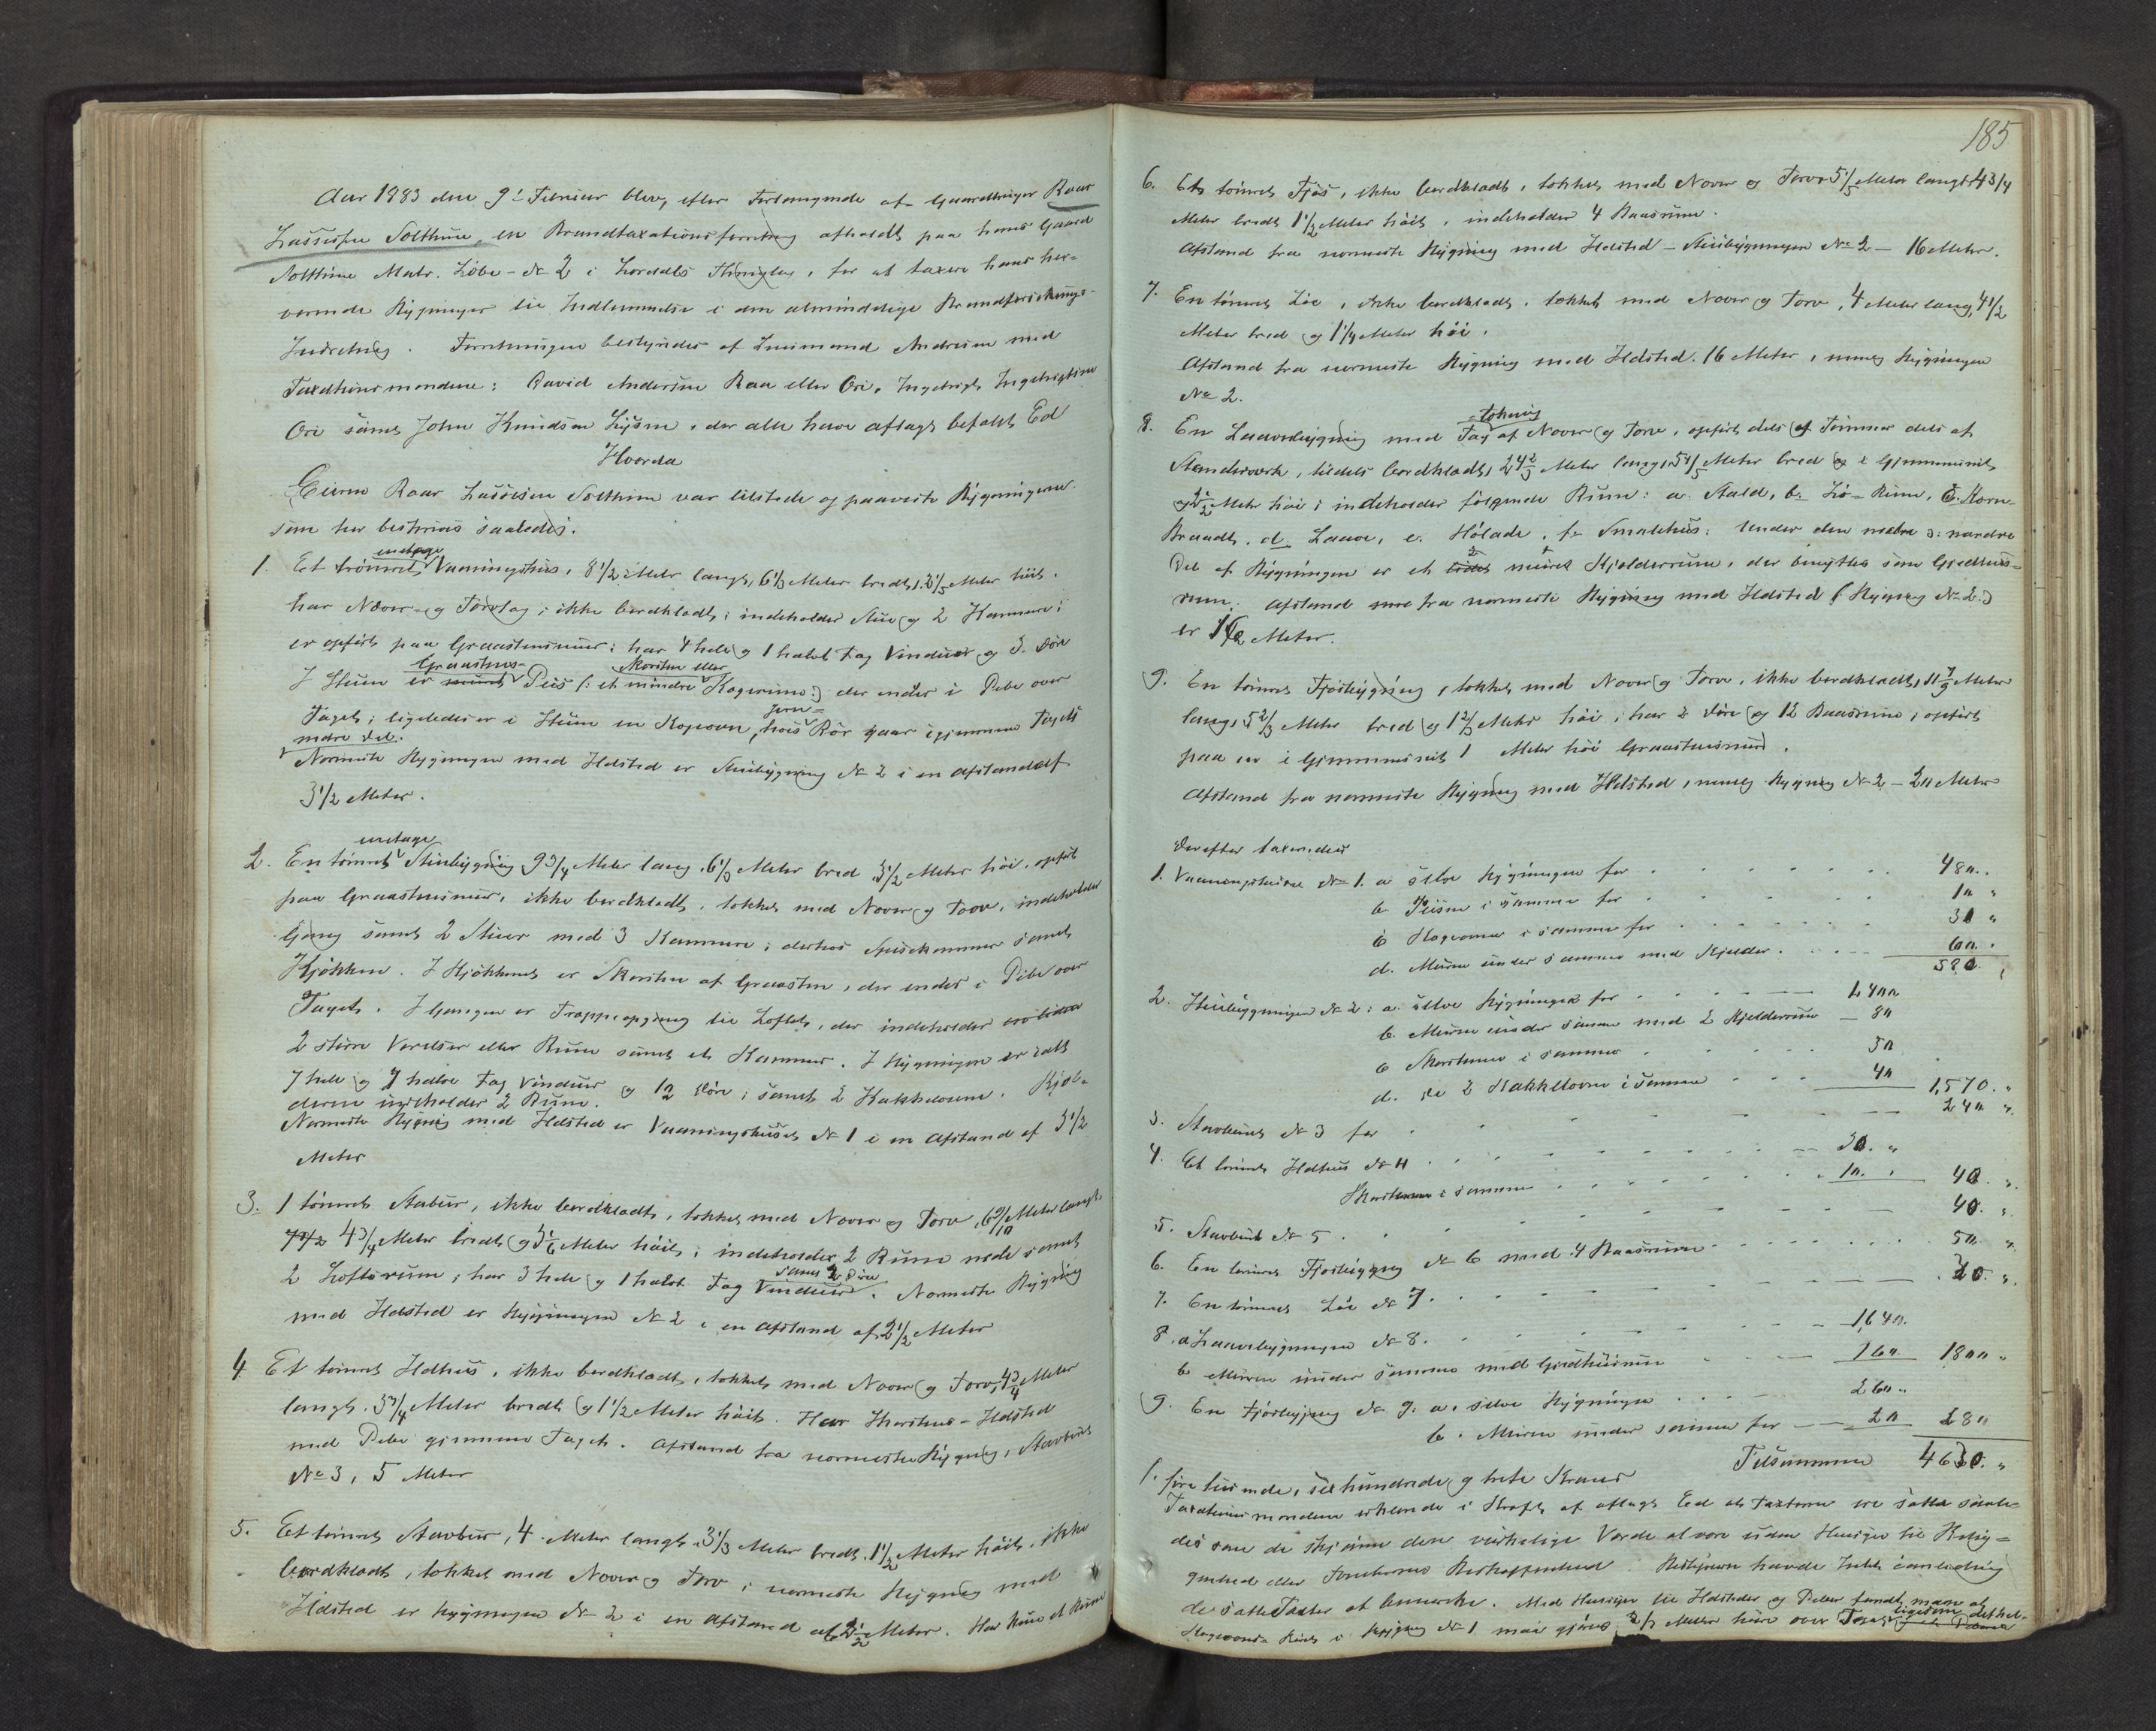 Aar 1883 den 9de Februar blev, efter Forlangende af Gaardbruger Roar
Lassesen Solthun, en Brandtaxationsforretning afholdt paa hans Gaard
Solthun Matr. Løbe-№ 2 i Lærdals Thinglag, for at taxere hans her-
værende Bygninger til Indlemmelse i den almindelige Brandforsikrings-
Indretning. Forretningen bestyredes af Lensmand Andersen med
Taxationsmændene: David Andersen Raa eller Ori, Ingebrigt Ingebrigtsen
Ori samt John Knudsen Ljøsne, der alle have aflagt befalet Ed
Hvorda
Eieren Roar Lassesen Solthun var tilstede og paaviste Bygningerne
som her beskrives saaledes:
1. Et tømret enetage Vaaningshus, 8 1/2 Meter langt, 6 1/3 Meter bredt, 2 1/5 Meter høit.
har Næver- og Torvtag; ikke bordklædt; indeholder Stue og 2 Kammere;
er opført paa Graastensmuur; har 4 hele og 1 halvt Fag Vinduer og 3 Døre
I Stuen er Graastens- Peis (: et mindre Skorsten eller Kogerum :) der ender i Pibe over
Taget; ligeledes er i Stuen en Kogeovn, hvis Jern- Rør gaar igjennem Tagets
nedre Del.
Nærmeste Bygningen med Ildsted er Stuebygning № 2 i en Afstand af
3 1/2 Meter.
2. En tømret enetage Stuebygning 9 3/4 Meter lang, 6 1/3 Meter bred, 3 1/2 Meter høi, opført
paa Graastensmur, ikke bordklædt, tækket med Næver og Torv, indeholder
Gang samt 2 Stuer med 3 Kammere; derhos Spisekammer samt
Kjøkken. I Kjøkkenet er Skorsten af Graasten, der ender i Pibe over
Taget. I Gangen er Trappeopgang til Loftet, der indeholder
2 større Værelser eller Rum samt et Kammer. I Bygningen er ialt
7 hele og 7 halve Fag Vinduer og 12 Døre; samt 2 Kakkelovne. Kjæl-
deren indeholder 2 Rum.
Nærmeste Bygning med Ildsted er Vaaningshuset № 1 i en Afstand af 3 1/2
Meter
3. 1 tømret Stabur, ikke bordklædt, tækket med Næver og Torv, 6 9/10 Meter langt
4 3/4 Meter bredt og 3 1/6 Meter høit; indeholder 2 Rum nede samt
2 Loftsrum; har 3 hele og 1 halvt Fag Vinduer samt 2 Døre. Nærmeste Bygning
med Ildsted er Bygningen № 2 i en Afstand af 2 1/2 Meter
4 Et tømret Ildhus, ikke bordklædt, tækket med Næver og Torv, 4 3/4 Meter
langt, 3 3/4 Meter bredt og 1 1/2 Meter høit. Har Skorstens-Ildsted
med Pibe gjennem Taget. Afstand fra nærmeste Bygning, Stavburet
№ 3, 5 Meter
5. Et tømret Stavbur, 4 Meter langt, 3 1/3 Meter bredt, 1 1/2 Meter høit, ikke
bordklædt, tækket med Næver og Torv; nærmeste Bygning med
Ildsted er Bygningen № 2 i en Afstand af 2 1/2 Meter. Har kun et Rum
185
6. Et tømret Fjøs, ikke bordklædt, tækket med Næver og Torv 5 1/5 Meter langt 4 3/4
Meter bredt 1 1/2 Meter høit, indeholder 4 Baasrum.
Afstand fra nærmeste Bygning med Ildsted - Stuebygningen № 2 - 16 Meter.
7. En tømret Løe, ikke bordklædt, tækket med Næver og Torv, 4 Meter lang, 4 1/2
Meter bred og 1 1/4 Meter høi.
Afstand fra nærmeste Bygning med Ildsted 16 Meter, nemlig Bygningen
№ 2.
8. En Laavebygning med Tag-tækning af Næver og Torv, opført dels af Tømmer dels af
Stenderværk, tildels bordklædt, 24 2/3 Meter lang, 5 4/5 Meter bred og i Gjennemsnit
Meter høi; indeholder følgende Rum: a. Stald, b. Lø-Rum, c. Korn-
Braadt, d. Laave, e. Hølade, f. Smalehus: Under den nedre :: nordre
Del af Bygningen er et muret Kjælderrum, der benyttes som Gjedhus-
rum. Afstand fra nærmeste Bygning med Ildsted (Bygning № 2:)
er 16 Meter.
9. En tømret Fjøsbygning, tækket med Næver og Torv, ikke bordklædt, 11 7/9 Meter
lang, 5 2/3 Meter bred og 1 2/3 Meter høi; har 2 Døre og 12 Baasrum; opført
paa en i Gjennemsnit 1 Meter høi Graastensmur.
Afstand fra nærmeste Bygning med Ildsted, nemlig Bygning № 2 - 20 Meter
Derefter taxeredes
1. Vaaningshuset № 1. a selve Bygningen for 480.
b. Peisen i samme for 10 "
c Kogeovnen i samme for 30 "
d. Muren under samme med Kjelder. 60.
580.
2. Stuebygningen № 2: a. selve Bygningen for 1,400
b. Muren under samme med 2 Kjelderrum 80
c Skorstenen i samme 50
d. De 2 Kakkelovne i samme 40 1,570. "
3. Stavburet № 3 for 240 "
4. Et tømret Ildhus № 4 30. "
Skorstenen i samme 10. 40. "
5. Stavburet № 5. 40. "
6. En tømret Fjøsbygning № 6 med 4 Baasrum 50 "
7. En tømret Løe № 7. 30. "
8. a Laavebygningen № 8. 1,640.
b Muren under samme med Gjedhusrum 160 1800 "
9. En Fjøsbygning № 9: a. selve Bygningen 260 "
b. Muren under samme for 20 280
Tilsammen 4630. "
fire tusinde, sex hundrede og treti Kroner
Taxationsmændene erklærede i Kraft af aflagt Ed at Taxterne ere satte saale-
des som de skjønne den virkelige Værdi at være uden Hensyn til Belig-
genhed eller Bestyreren havde Intet i anledning
de satte Taxter at bemærke. Med Hensyn til Ildsteder og Piber fandt man at
Kogeovns- Røret i Bygning № 1 maa gjøres Meter høiere over